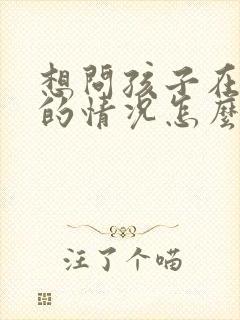 想問孩子在
的情況怎麼
注了个喵